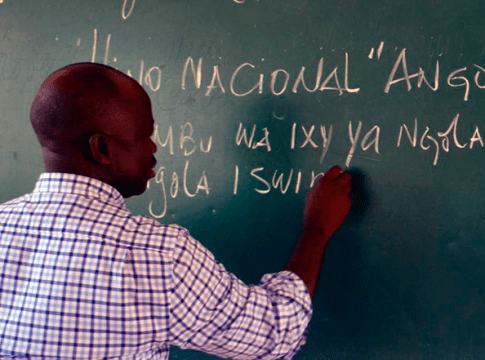 "Hino NACIONAL "ANGO
MBU WA IXY YA NGOLA
gola ISWI